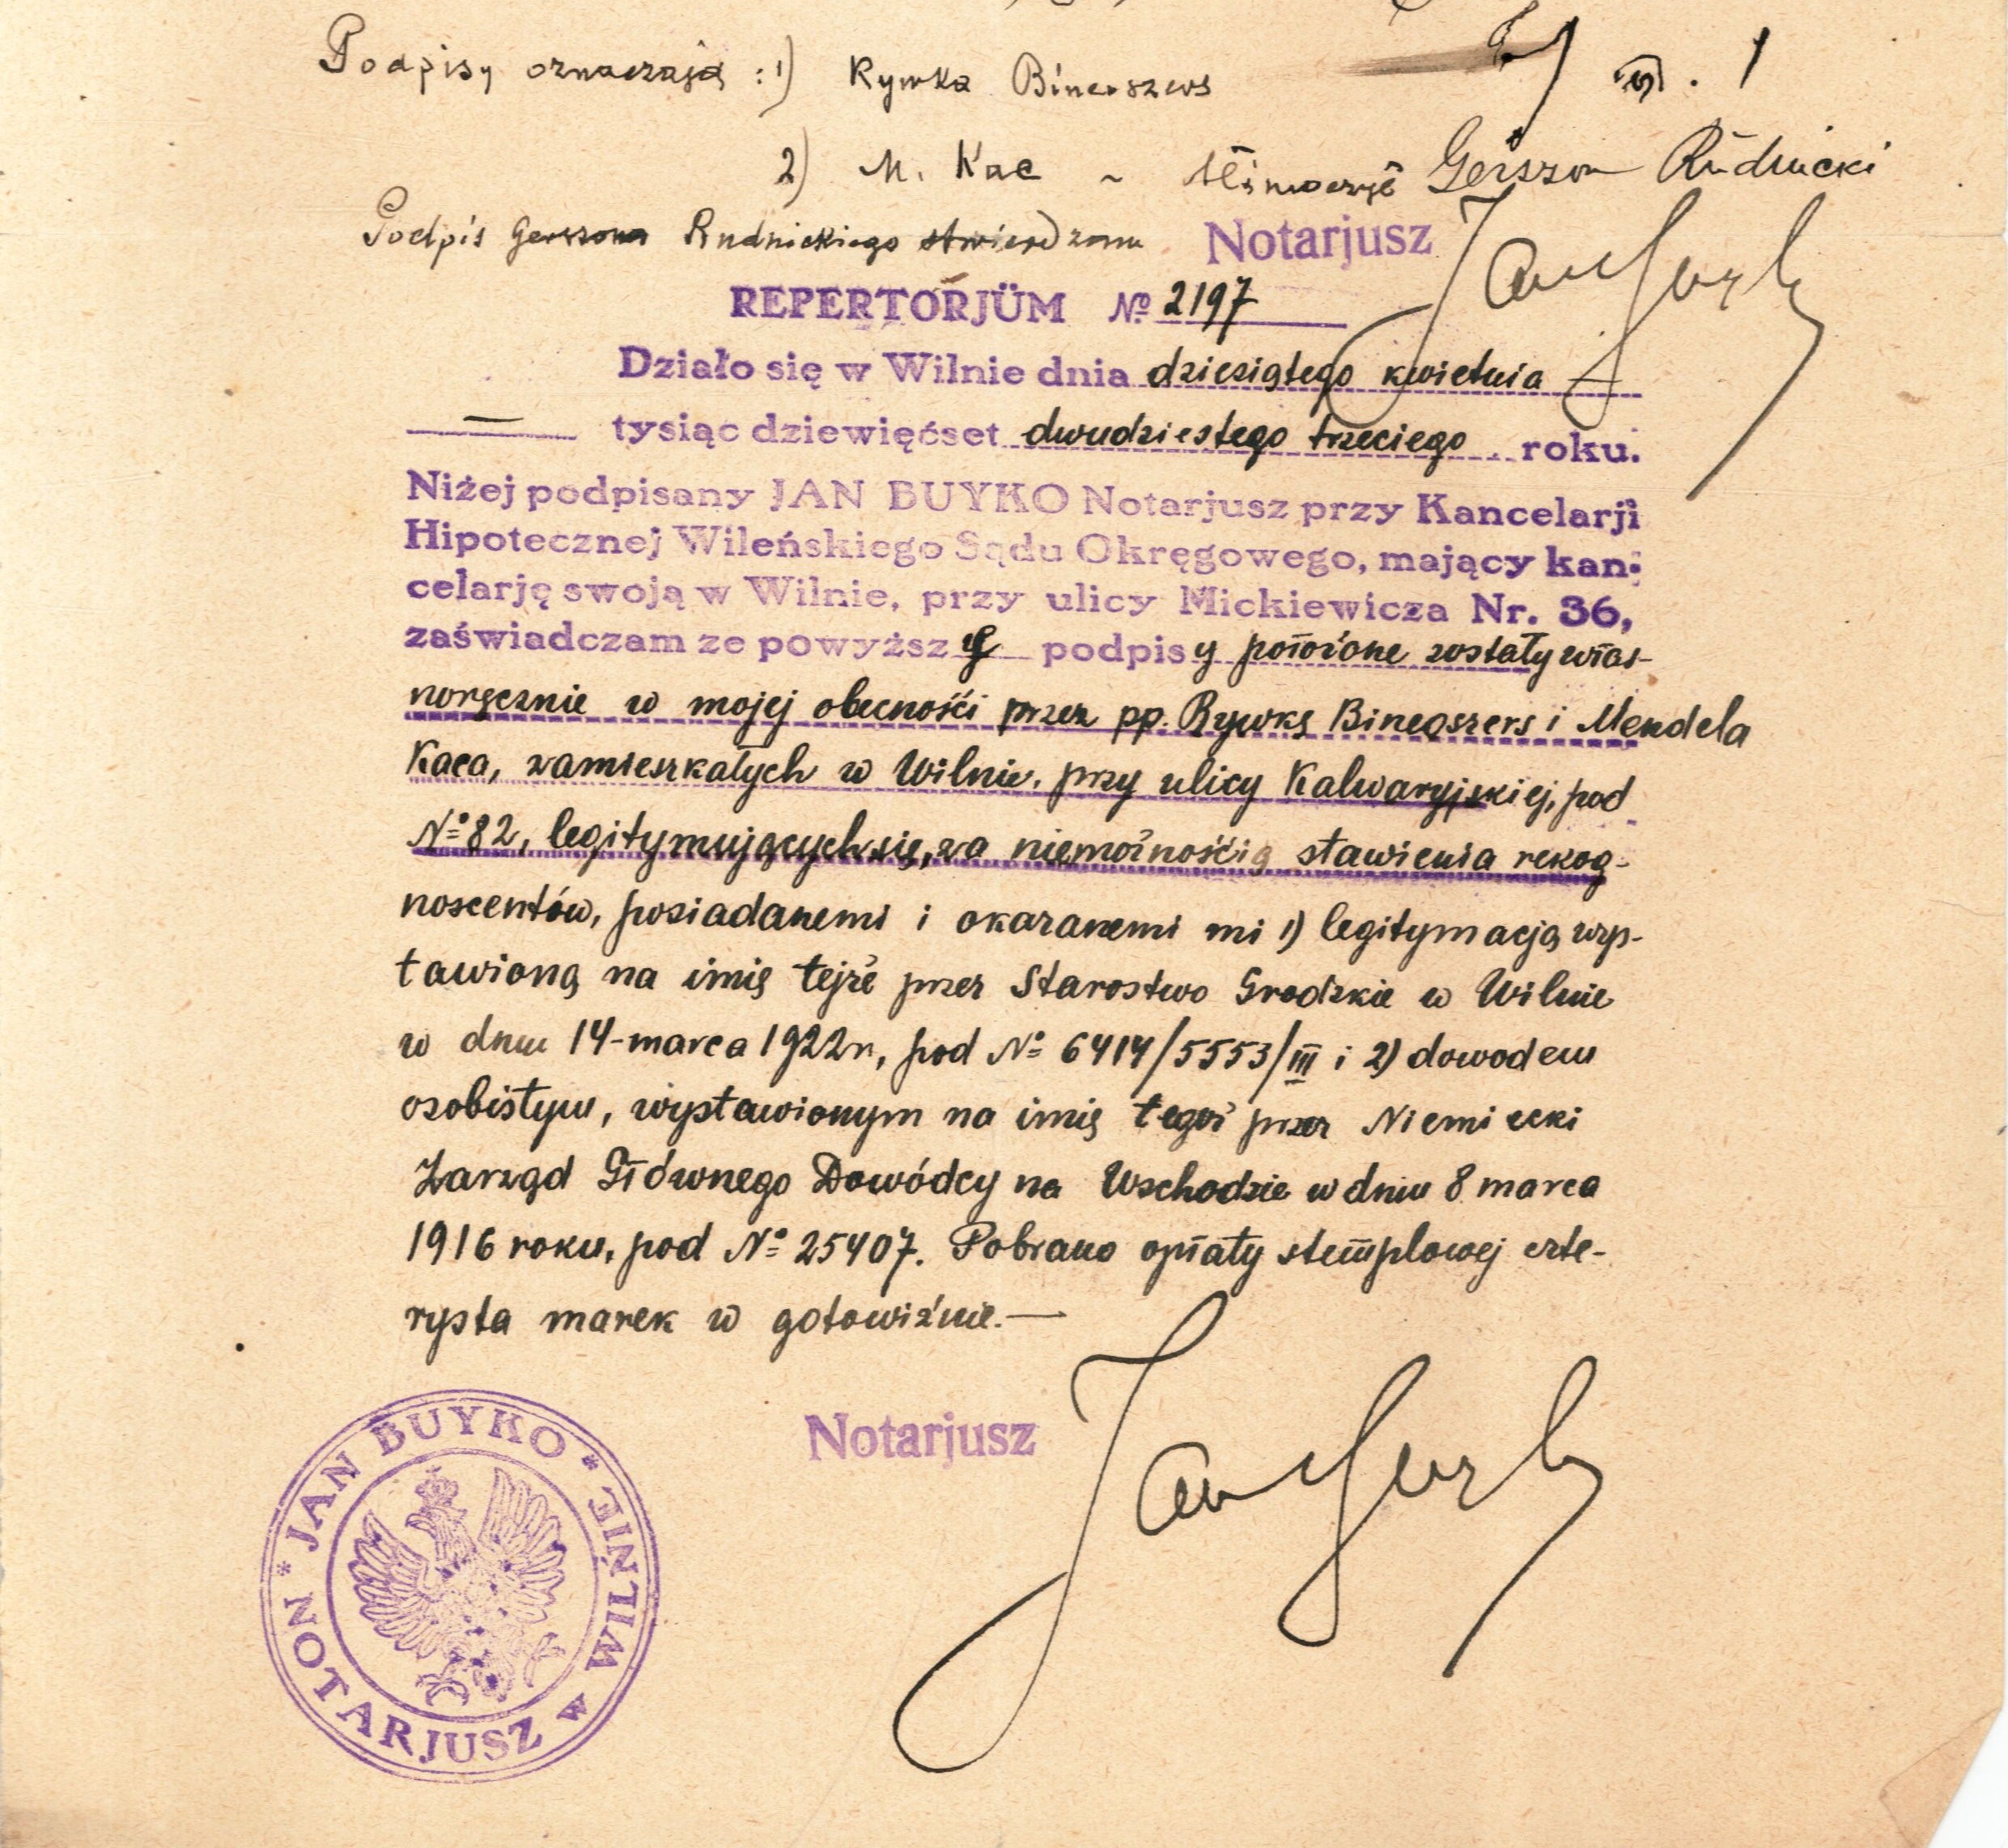 Podpisy oznaczają : 1) Rywka Binerszews
2) M. Kac ~ Gerszon Rudnicki
Podpis Gerszona Rudnickiego stwierdzam Notarjusz
REPERTORJÜM № 2197
Działo się w Wilnie dnia dziesiątego kwietnia —
— tysiąc dziewięćset dwudziestego trzeciego roku.
Niżej podpisany JAN BUYKO Notarjusz przy Kancelarji
Hipotecznej Wileńskiego Sądu Okręgowego, mający kan-
celarję swoją w Wilnie, przy ulicy Mickiewicza Nr. 36,
zaświadczam ze powyższy podpisy położone zostały włas-
noręcznie w mojej obecności przez pp. Rywkę Binegszers i Mendela
Kaca, zamieszkałych w Wilnie, przy ulicy Kalwaryjskiej, pod
№ 82, legitymujących się, za niemożnością stawienia rekog-
noscentów, posiadanemi i okazanemi mi 1) legitymacją wys-
tawioną na imię tejże przez Starostwo Grodzkie w Wilnie
w dniu 14-marca 1922 r, pod № 6414/5553/III i 2) dowodem
osobistym, wystawionym na imię tegoż przez Niemiecki
Zarząd Głównego Dowódcy na Wschodzie w dniu 8 marca
1916 roku, pod № 25407. Pobrano opłaty stemplowej czte-
rysta marek w gotowiźnie. —
Notarjusz
* JAN BUYKO * NOTARJUSZ w WILNIE